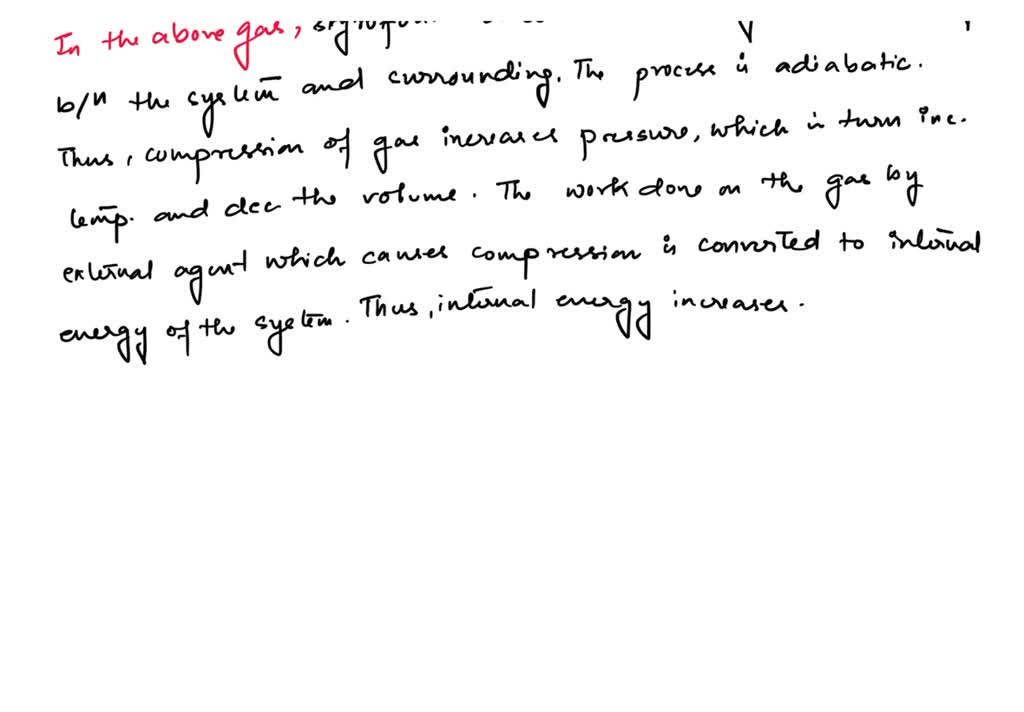 In the above gas,
b/n the system and surrounding. The process is adiabatic.
Thus, compression of gas increases pressure, which in turn inc.
temp. and dec the volume. The work done on the gas by
external agent which causes compression is converted to internal
energy of the system. Thus, internal energy increases.